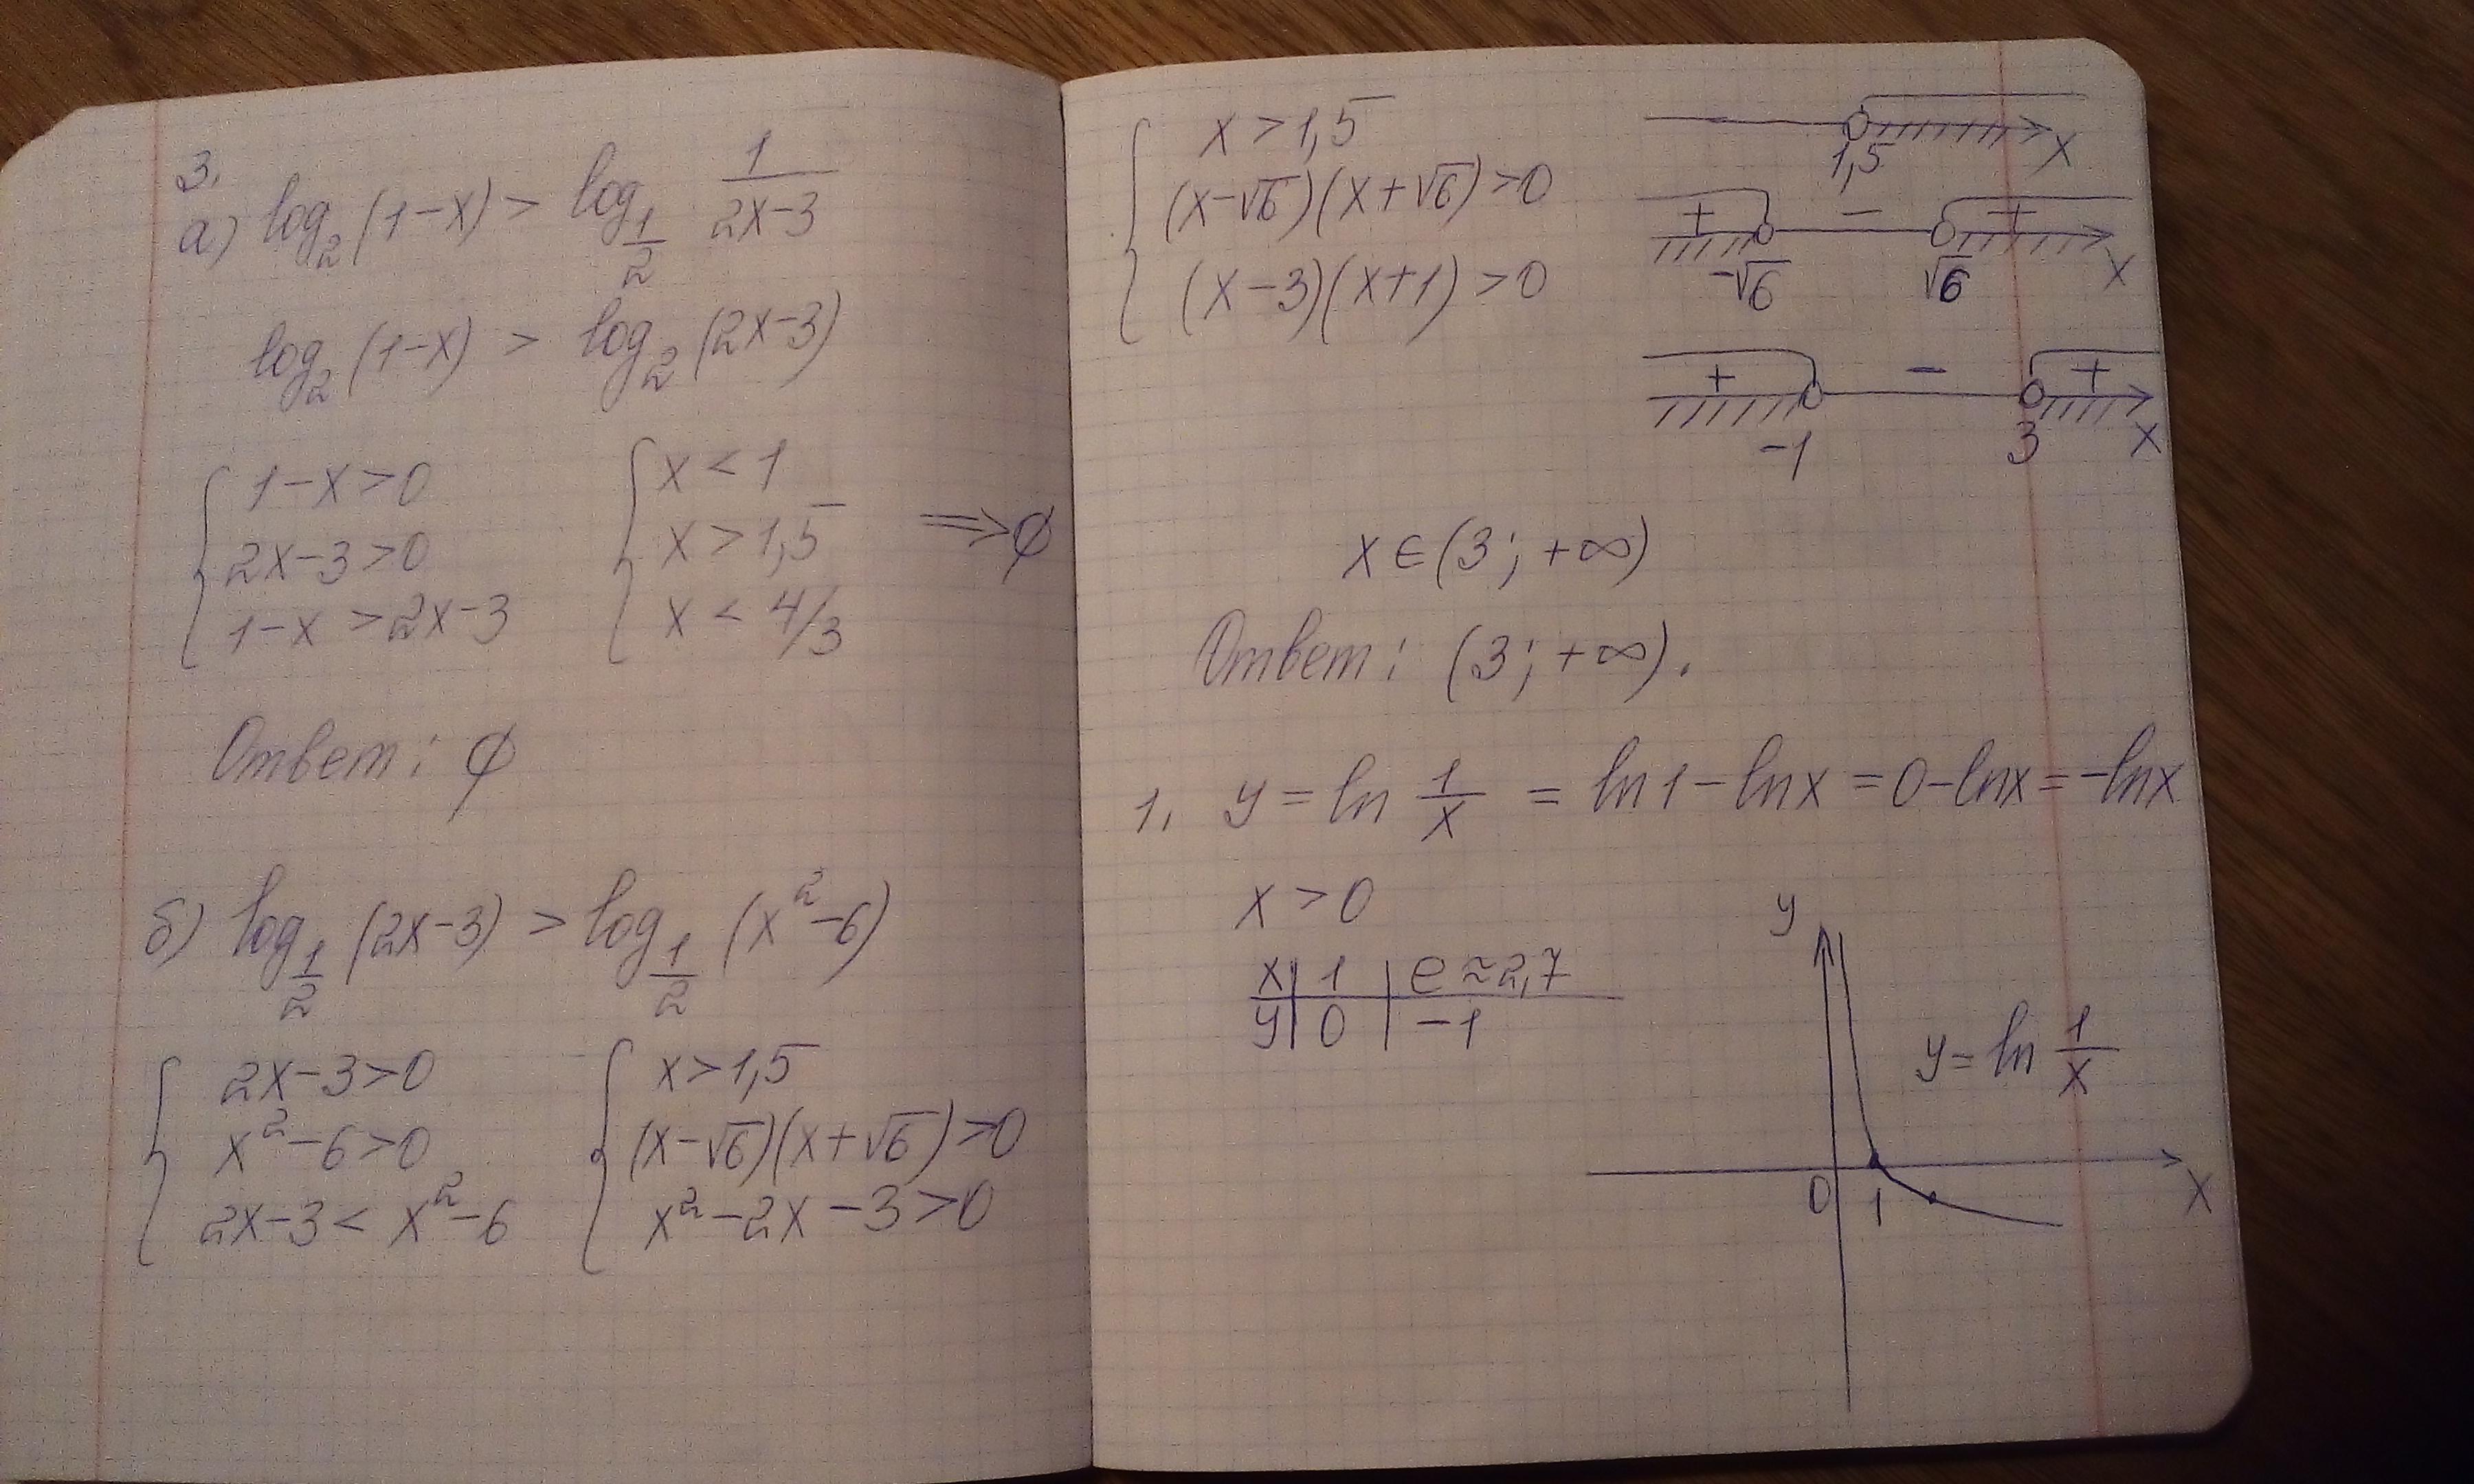 3.
а) log₂(1-x) > log_{1/2} 1/(2x-3)
log₂(1-x) > log₂(2x-3)
{ 1-x>0 { x<1
2x-3>0 x>1,5 ⟹ ∅
1-x>2x-3 x<4/3
Ответ: ∅
б) log_{1/2}(2x-3) > log_{1/2}(x²-6)
{ 2x-3>0 { x>1,5
x²-6>0 (x-√6)(x+√6)>0
2x-3<x²-6 x²-2x-3>0
{ x>1,5
(x-√6)(x+√6)>0
(x-3)(x+1)>0
1,5 x
+ - +
-√6 √6 x
+ - +
-1 3 x
x∈(3;+∞)
Ответ: (3;+∞).
1. y = ln 1/x = ln1-lnx=0-lnx=-lnx
x>0
x | 1 | e≈2,7
y | 0 | -1
y
y=ln 1/x
0 1 x